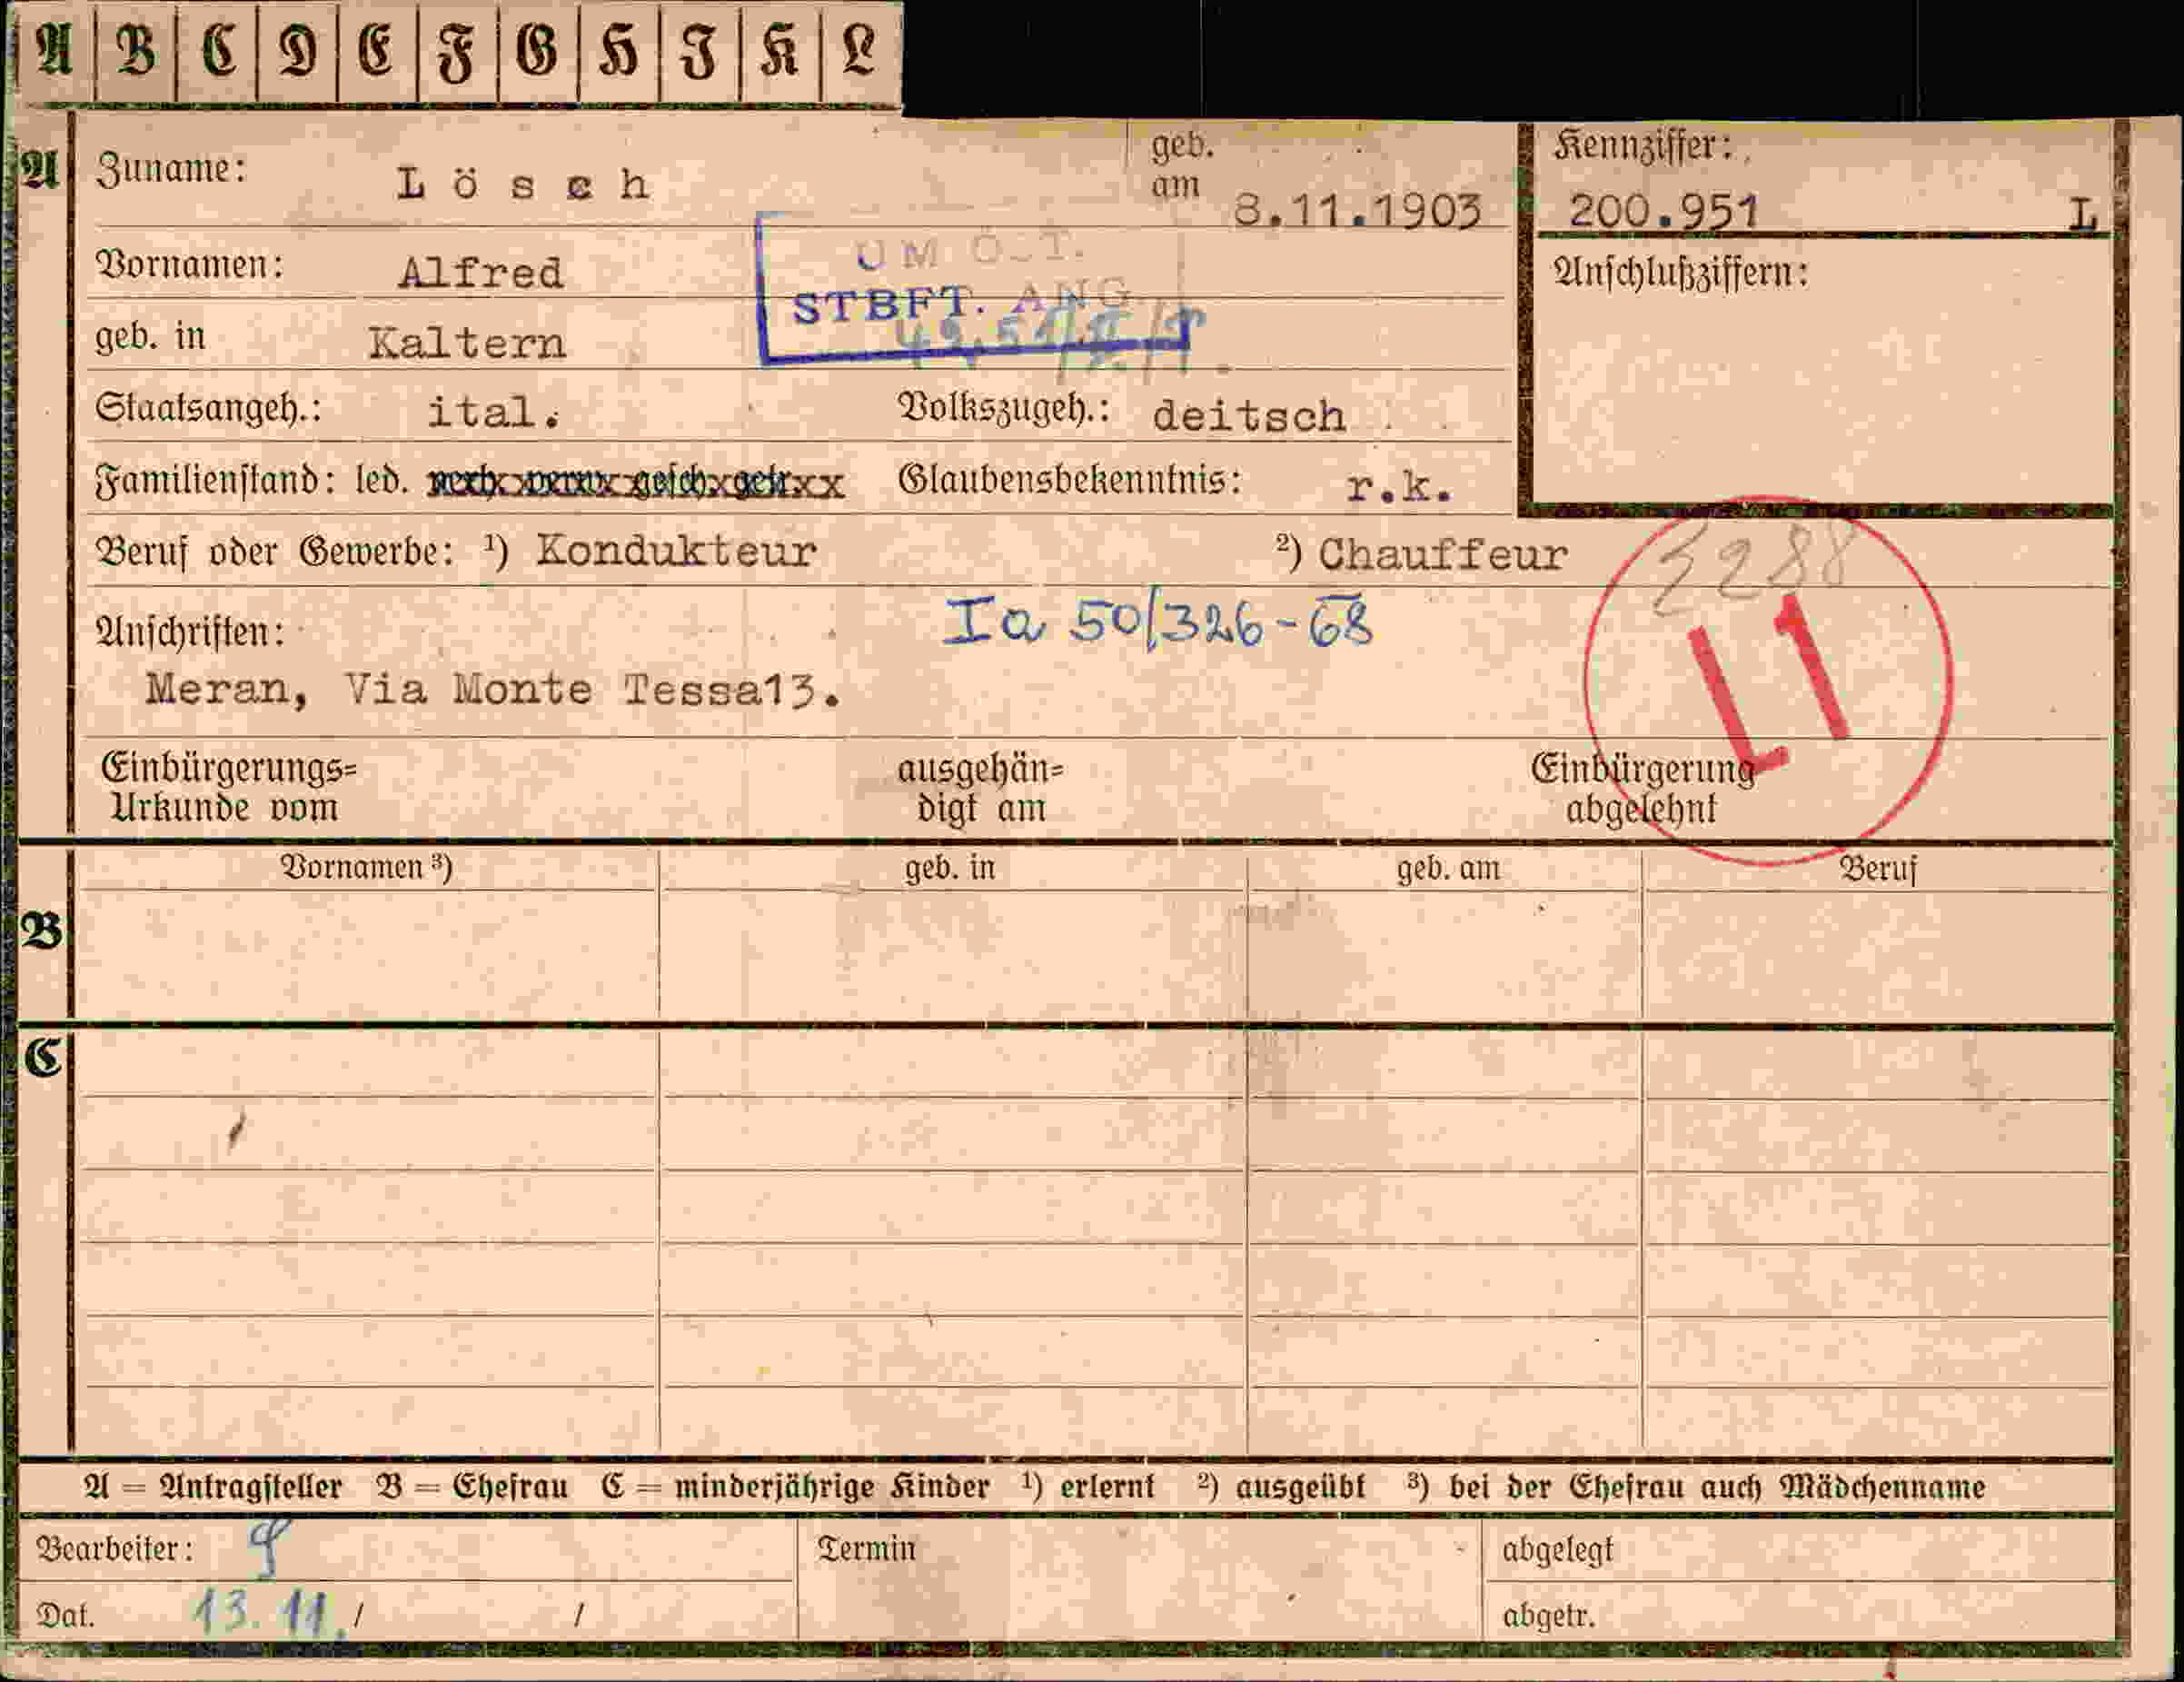 A B C D E F G H I K L
A Zuname: Lösch geb. am 8.11.1903 Kennziffer: 200.951 L
Vornamen: Alfred UM ÖST. Anschlußziffern:
STBFT. ANG.
geb. in Kaltern
Staatsangeh.: ital. Volkszugeh.: deitsch
Familienstand: led. verh. verw. gesch. getr. Glaubensbekenntnis: r.k.
Beruf oder Gewerbe: ¹) Kondukteur ²) Chauffeur 3288
Anschriften: Ia 50/326-68 L1
Meran, Via Monte Tessa13.
Einbürgerungs= ausgehän= Einbürgerung
Urkunde vom digt am abgelehnt
Vornamen ³) geb. in geb. am Beruf
B
C
A = Antragsteller B = Ehefrau C = minderjährige Kinder ¹) erlernt ²) ausgeübt ³) bei der Ehefrau auch Mädchenname
Bearbeiter: Termin abgelegt
Dat. 13.11. / / abgetr.